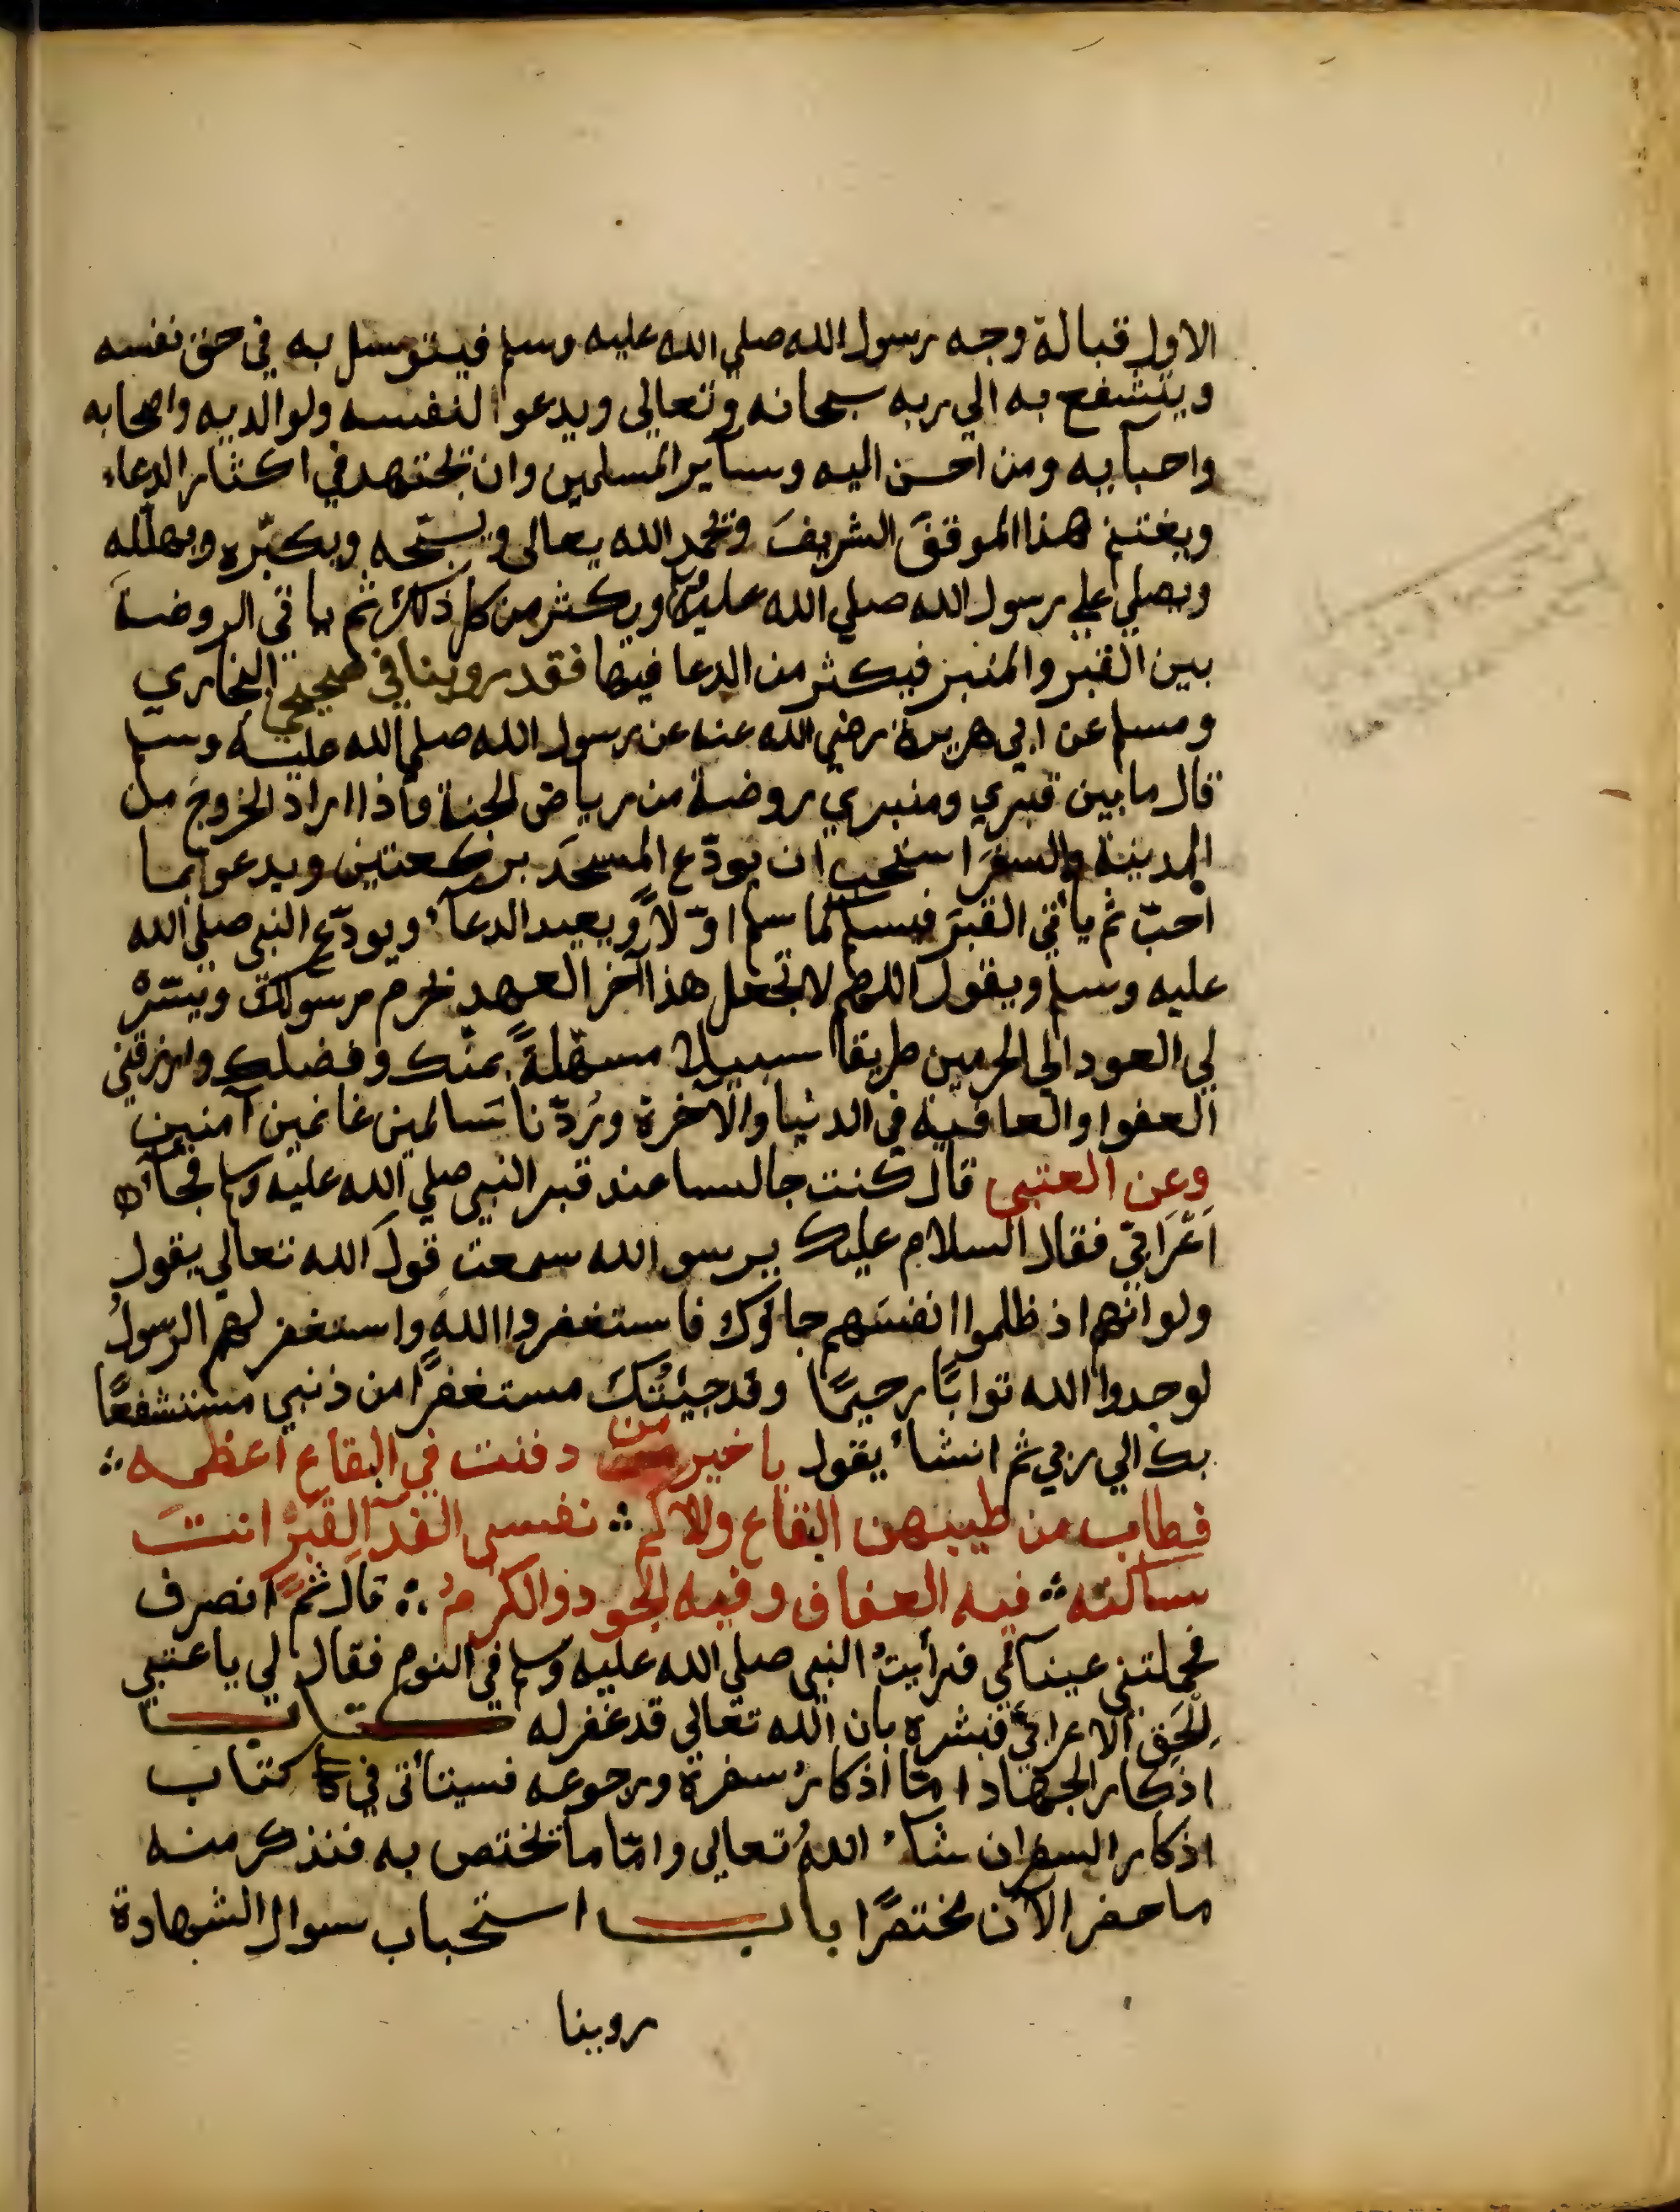 الاول قبالة وجه رسول الله صلي الله عليه وسلم فيتوسل به في حق نفسه
ويتشفع به الي ربه سبحانه وتعالى ويدعوا لنفسه ولوالديه واصحابه
واحبابه ومن احسن اليه وسآير المسلمين وان يجتهد في اكثار الدعاء
ويغتنم هذا الموقفَ الشريفَ ويحمد الله تعالى ويسبّحه ويكبّره ويهلّله
ويصلي علي رسول الله صلي الله عليه ويكثر من كل ذلك ثم ياتي الروضة
بين القبر والمنبر فيكثر من الدعا فيها فقد روينا في صحيحي البخاري
ومسلم عن ابي هريرة رضي الله عنه عن رسول الله صلي الله عليه وسلم
قال ما بين قبري ومنبري روضة من رياض الجنة واذا اراد الخروجَ من
المدينة والسفرَ استحب ان يودّع المسجدَ بركعتين ويدعوا بما
احبّ ثم يأتي القبرَ فيسلم كما سلم اوّلاً ويعيد الدعآء ويودّع النبي صلي الله
عليه وسلم ويقول اللهم لا تجعل هذا آخر العهد بحرم رسولك ويسّرْ
لي العود الي الحرمين طريقا سبيلا مسهّلةً بمنّك وفضلك وارزقني
العفوا والعافية في الدنيا والآخرة ورُدّنا سَالمين غانمين آمنين
وعن العتبي قال كنت جالسا عند قبر النبي صلي الله عليه وسلم فجآءه
اَعْرَابيّ فقال السلام عليك يرسو الله سمعت قولَ الله تعالي يقول
ولو انهم اذ ظلموا انفسَهم جاؤك فاستغفروا اللهَ واستغفر لهم الرسولُ
لوجدوا الله توابًا رحيمًا وقد جيئتُكَ مستغفرًا من ذنبي مستشفعًا
بك الي ربي ثم انشأ يقول يا خير من دفنت في البقاع اعظمه
فطاب من طيبهن البقاع والاكم نفسي الفدآ لقبرْ انتَ
ساكنه فيه العفاف وفيه الجود والكرمُ قال ثمَّ انصرف
فحملتني عينآئي فرأيتُ النبي صلي الله عليه وسلم في النوم فقال لي يا عتبي
اِلْحَق الاعرابيَّ فبشره بان الله تعالى قد غفر له كتاب
اذكار الجهاد امّا اذكارُ سفره ورجوعه فسيتأتى في كتاب
اذكار السفر ان شآء اللهُ تعالي وامّا ما يختص به فنذكر منه
ما حضر الآن مختصرًا باب استحباب سوال الشهادة
روينا